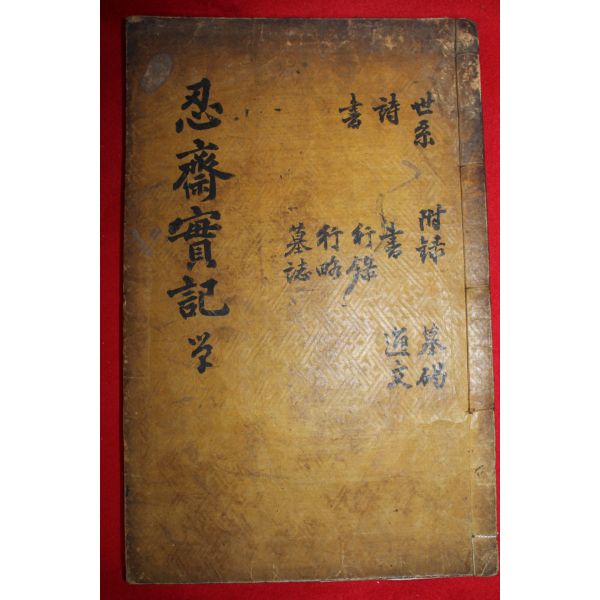 世系
詩
書
附錄
書
行錄
行略
墓誌
墓碣
通文
忍齋實記